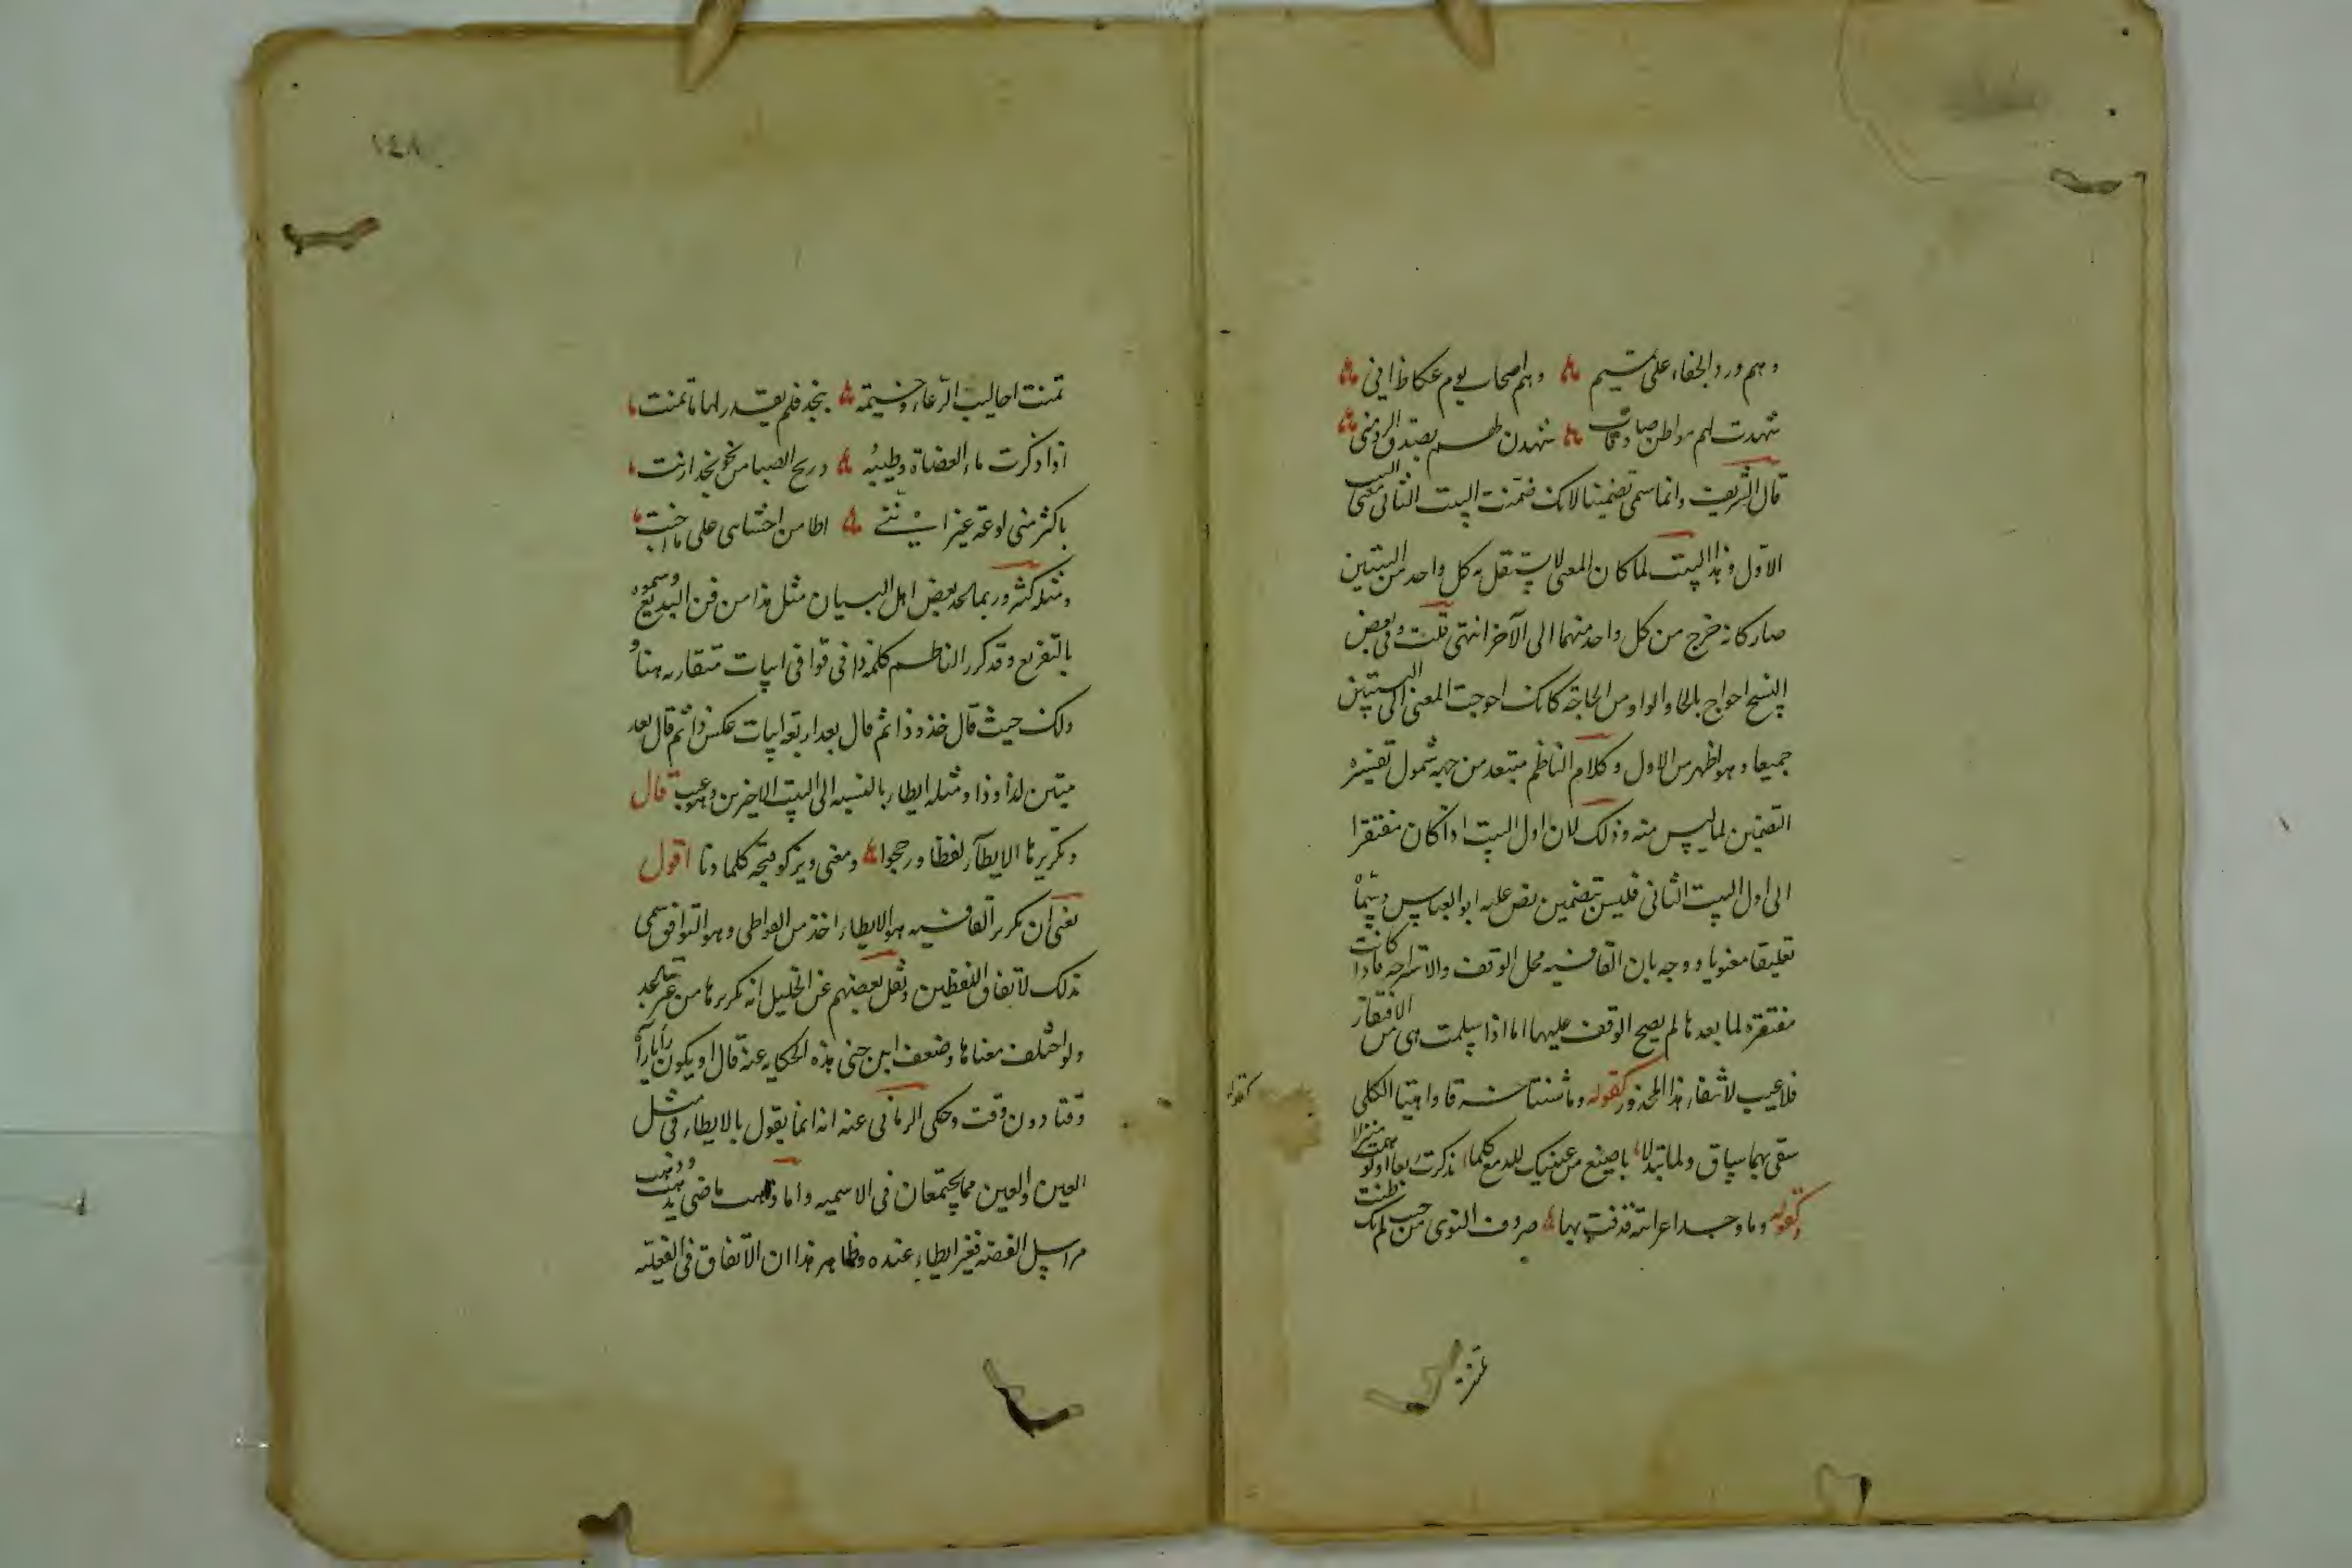 وهم وردوا الجفار على تميم ۞ وهم اصحاب يوم عكاظ اني ۞
شهدت لهم مواطن صادقات ۞ شهدن لهم بصدق الود مني ۞
قال الشريف وانما سمي تضمينا لانك ضمنت البيت الثاني معنى البيت
الاول وهذا البيت لما كان المعنى لا يستقل به كل واحد من البيتين
صار كانه خرج من كل واحد منهما الى الآخر انتهى قلت وفي بعض
النسخ احواج بالحاء والواو من الحاجة كانك احوجت المعنى الى البيتين
جميعا وهو اظهر من الاول وكلام الناظم مبتعد من جهة شمول تفسيره
التضمين لما ليس منه وذلك لان اول البيت اذا كان مفتقرا
الى اول البيت الثاني فليس بتضمين نص عليه ابو العباس وسماه
تعليقا معنويا ووجه بان القافيه محل الوقف والاستراحة فاذا كانت
مفتقرة لما بعدها لم يصح الوقف عليها اما اذا سلمت هي من الافتقار
فلا عيب لانتفاء هذا المحذور كقوله وما شنتا خرقاء واهيتا الكلى
سقى بهما ساق ولما تبللا باضيع من عينيك للدمع كلما تذكرت ربعا او توهمت منزلا
وكقوله وما وجد اعرابية قذفت بها ۞ صروف النوى من حيث لم تك ظنت
تمنت
تمنت احاليب الرعاء وخيمة ۞ بنجد فلم يقدر لها ما تمنت
اذا ذكرت ماء العضاة وطيبه ۞ وريح الصبا من نحو نجد ارنت
باكثر مني لوعة غير انني ۞ اطامن احشاى على ما اجنت
ومثله كثير وربما لحد بعض اهل البيان مثل هذا من فن البديع وسموه
بالتفريع وقد كرر الناظم كلمة ذا في قوافي ابيات متقاربه هنا و
ولك حيث قال خذه وذا ثم قال بعد اربعة ابيات عكس ذا ثم قال بعد
بيتين لذا وذا ومثله ايطاء بالنسبه الى البيت الاخرين وهو عيب قال
وتكريرها الايطآء لفظا ورجحوا ۞ ومعنى ويزكو قبحه كلما دنا اقول
يعني ان تكرير القافيه هو الايطاء اخذ من التواطى وهو التوافق سمي
بذلك لاتفاق اللفظين ونقل بعضهم عن الخليل انه تكريرها من غير
ولو اختلف معناها وضعف ابن جني هذه الحكايه عنه قال او يكون
وقتا دون وقت وحكى الرماني عنه انه انما يقول بالايطاء في مثل
العين والعين مما يجتمعان في الاسميه واما ذهب ماضي يذهب وذهب
مراسل الفضة فغير ايطاء عنده وظاهر هذا ان الاتفاق في الفعليه
١٤٨